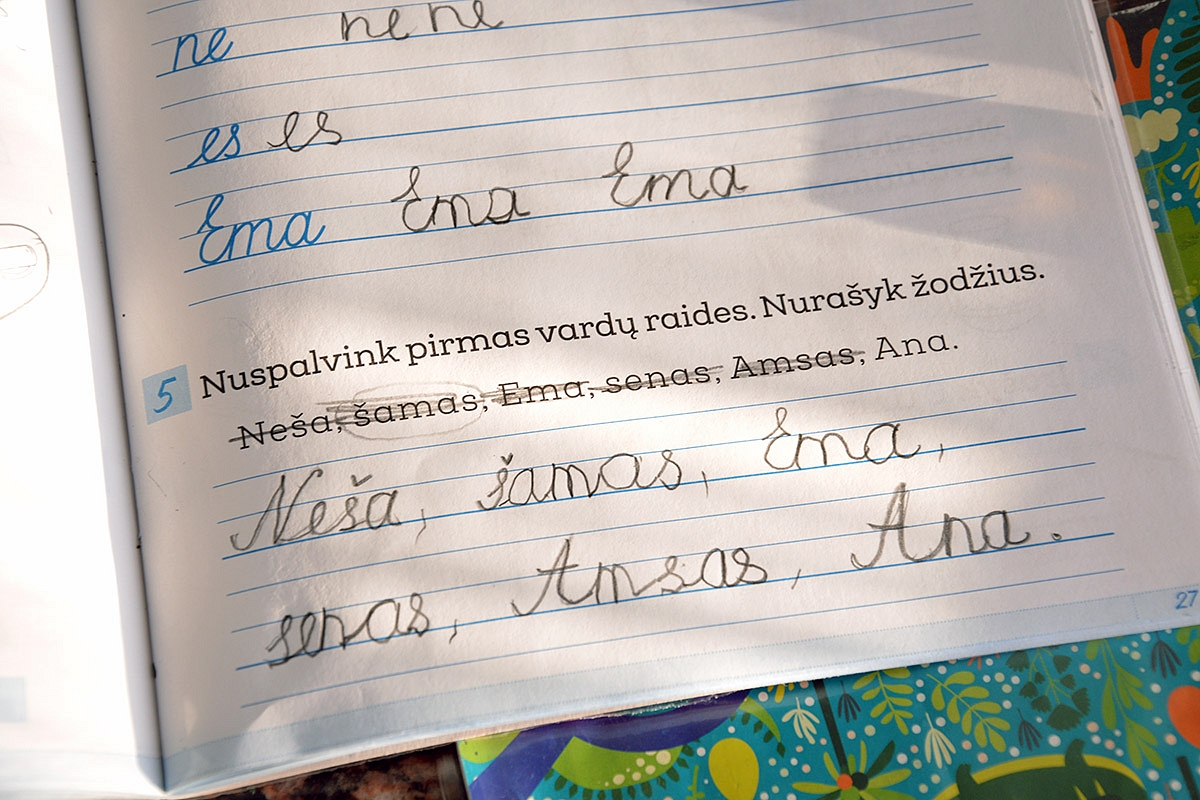 ne ne ne
es es
Ema Ema Ema
5 Nuspalvink pirmas vardų raides. Nurašyk žodžius.
Neša, šamas, Ema, senas, Amsas, Ana.
Neša, šamas, Ema,
senas, Amsas, Ana.
27